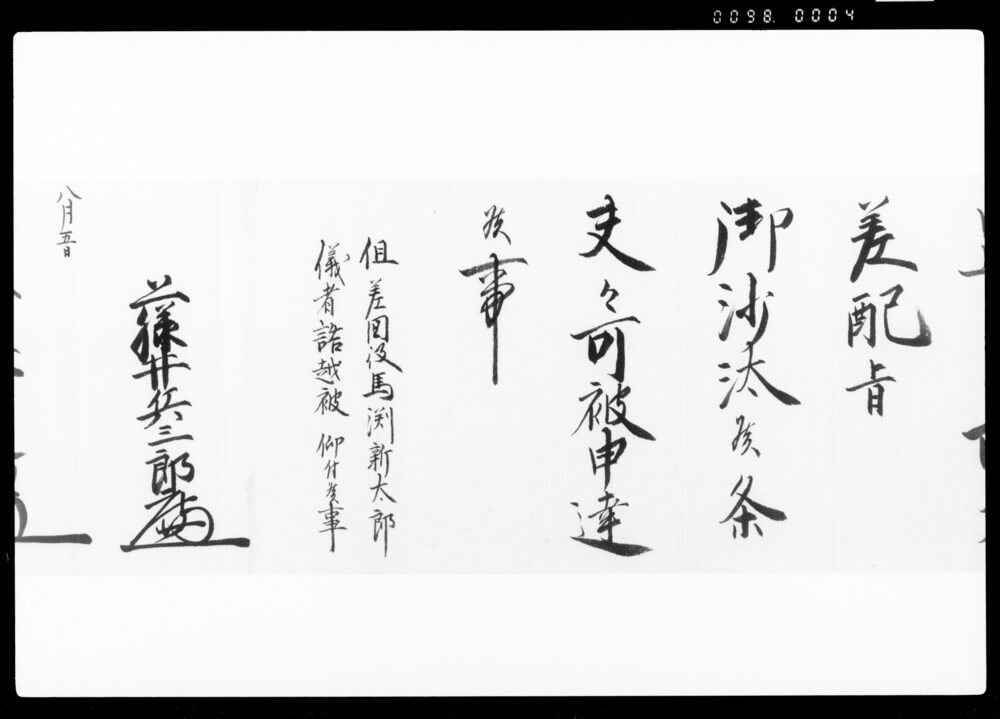 0098. 0004
差配旨
御沙汰候条
夫々可被申達
候事
但差図役馬渕新太郎
儀者詰越被 仰付候事
藤井兵三郎
八月五日